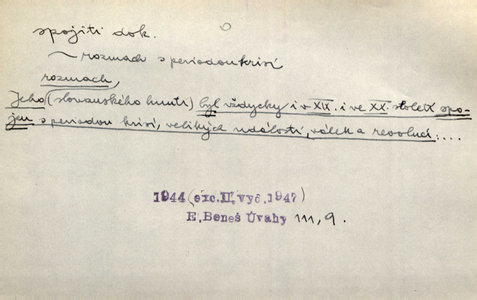 spojiti dok.
~ rozmach s periodou krisí
rozmach,
Jeho (slovanského hnutí) byl vždycky i v XIX. i ve XX. století spo-
jen s periodou krisí, velikých událostí, válek a revolucí....
1944 (exc.II.vyd.1947)
E.Beneš Úvahy 111,9.